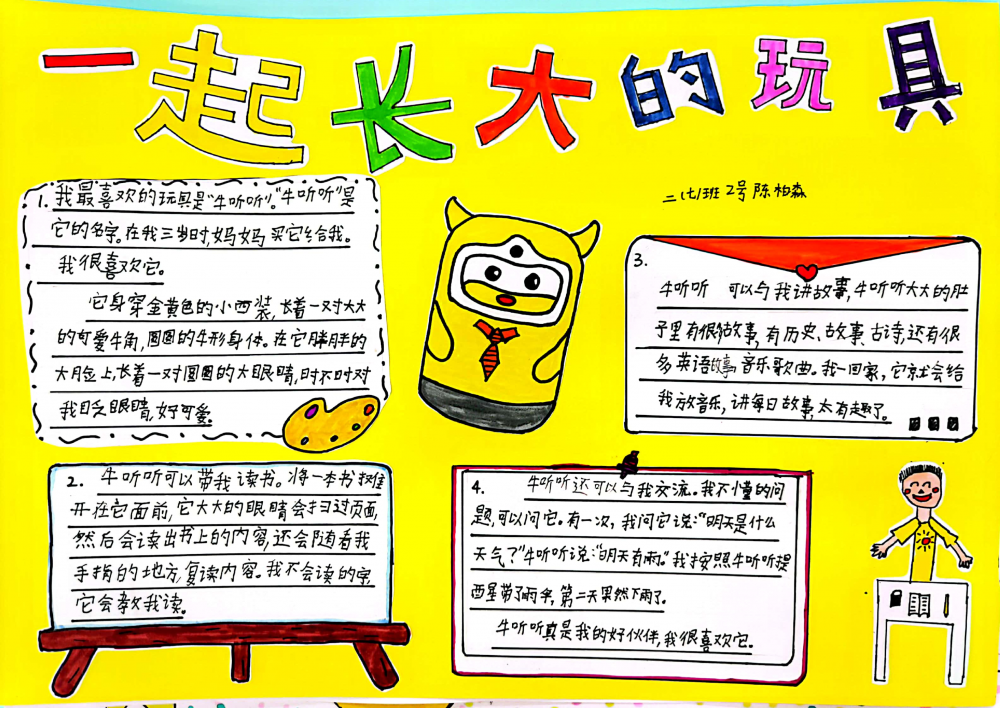 一起长大的玩具
二(七)班 2号 陈柏森
1.我最喜欢的玩具是“牛听听”。“牛听听”是
它的名字。在我三岁时,妈妈买它给我。
我很喜欢它。
它身穿金黄色的小西装,长着一对大大
的可爱牛角,圆圆的牛形身体。在它胖胖的
大脸上,长着一对圆圆的大眼睛,时不时对
我眨眼睛,好可爱。
2. 牛听听可以带我读书。将一本书摊
开在它面前,它大大的眼睛会扫过页面,
然后会读出书上的内容,还会随着我
手指的地方,复读内容。我不会读的字,
它会教我读。
3.
牛听听 可以与我讲故事,牛听听大大的肚
子里有很多故事,有历史、故事、古诗,还有很
多英语故事,音乐歌曲。我一回家,它就会给
我放音乐,讲每日故事,太有趣了。
4. 牛听听还可以与我交流。我不懂的问
题,可以问它。有一次,我问它说:“明天是什么
天气?”牛听听说:“明天有雨。”我按照牛听听提
醒带了雨伞,第二天果然下雨了。
牛听听真是我的好伙伴,我很喜欢它。